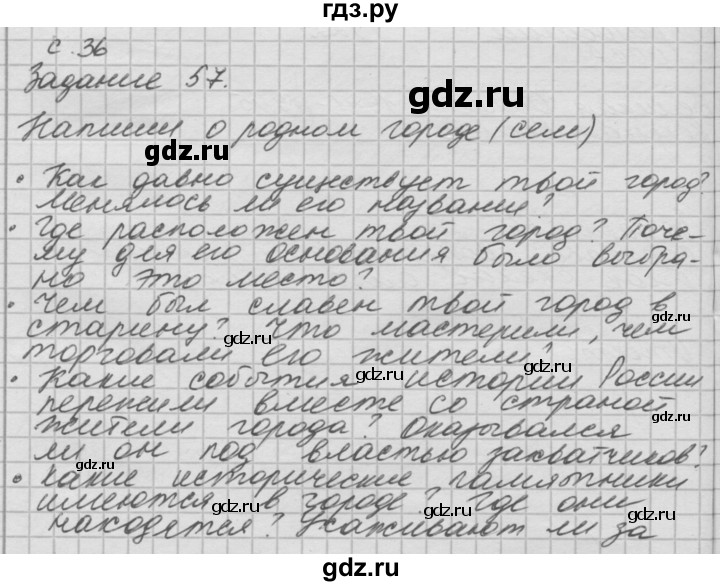 гдз.ру
с. 36
Задание 57.
гдз.ру
Напиши о родном городе (селе)
гдз.ру
• Как давно существует твой город?
гдз.ру
Менялось ли его название?
• Где расположен твой город? Поче-
му для его основания было выбра-
но это место?
• Чем был славен твой город в
гдз.ру
старину? Что мастерили, чем
торговали его жители?
гдз.ру
• Какие события истории России
гдз.ру
пережили вместе со страной
гдз.ру
жители города? Оказывался
ли он под властью захватчиков?
гдз.ру
• Какие исторические памятники
имеются в городе? Где они
гдз.ру
находятся? Ухаживают ли за
гдз.ру
гдз.ру